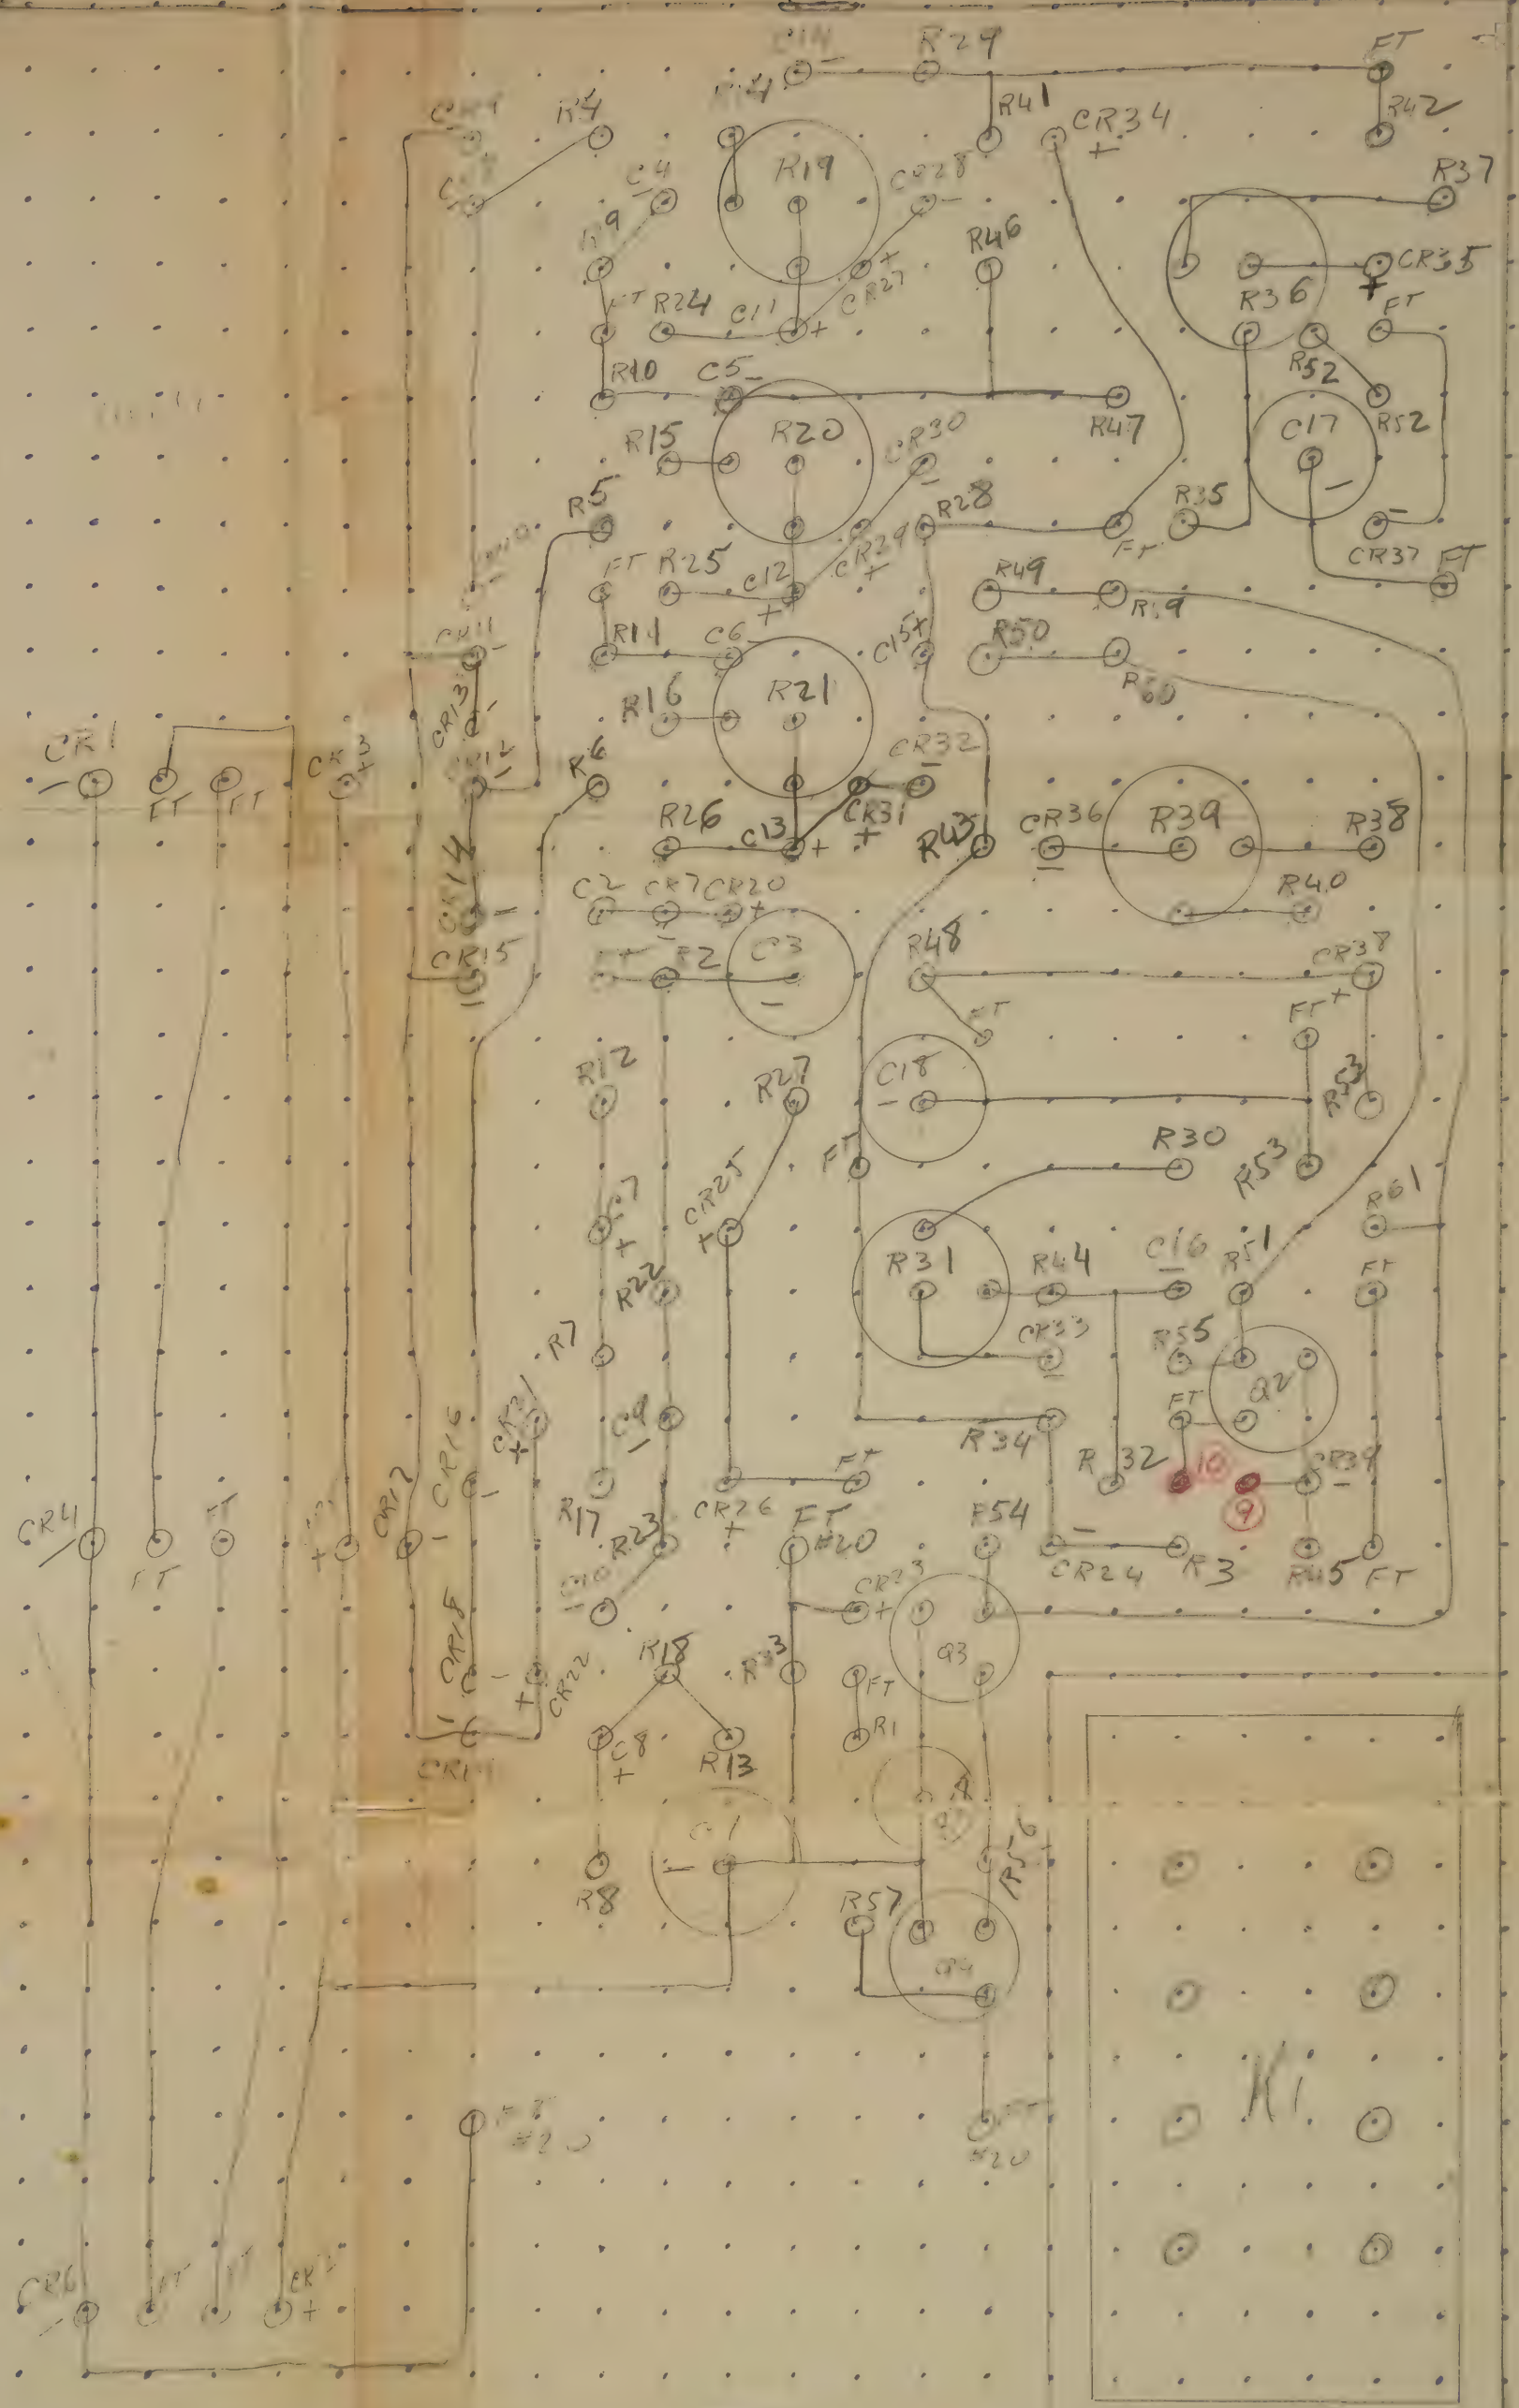 C14 - R29 FT
R4 R14 R41 CR34 + R42
C4 - R19 CR28 - R37
R9 R46
CR27 + CR35 +
FT R24 C11 + R36 FT
R52
R10 C5 - R47 C17 - R52
R15 R20 CR30 -
R5 CR29 + R28 FT R35 - CR37 FT
FT R25 C12 + R49 R19
CR11 R11 C6 - C15+ R50 R60
CR13 - R16 R21
CR1 - FT FT CR3 + CR12 - R6 CR32 -
R26 C13 + CR31 + R43 CR36 - R39 R38
CR14 - C2 CR7 - CR20 + R40
CR15 - R2 C3 - R48 CR38 +
FT FT
R12 R27 C18 - R53
FT R30 R53
C7 + CR25 + R61
R22 R31 R44 C16 - R51 FT
R7 CR33 - R55 Q2
CR21 + C9 - R34 FT
CR16 - R32 10 9 CR39 -
R17 CR26 + FT
CR4 - FT FT + CR17 - R23 FT #20 R54 - CR24 R3 R45 FT
C10 - CR23 +
CR18 - CR22 + R18 R33 Q3
FT
C8 + R13 R1
C1 -
R8 R57 R56
Q4
FT #20 FT #20
K1
CR6 - FT FT CR +